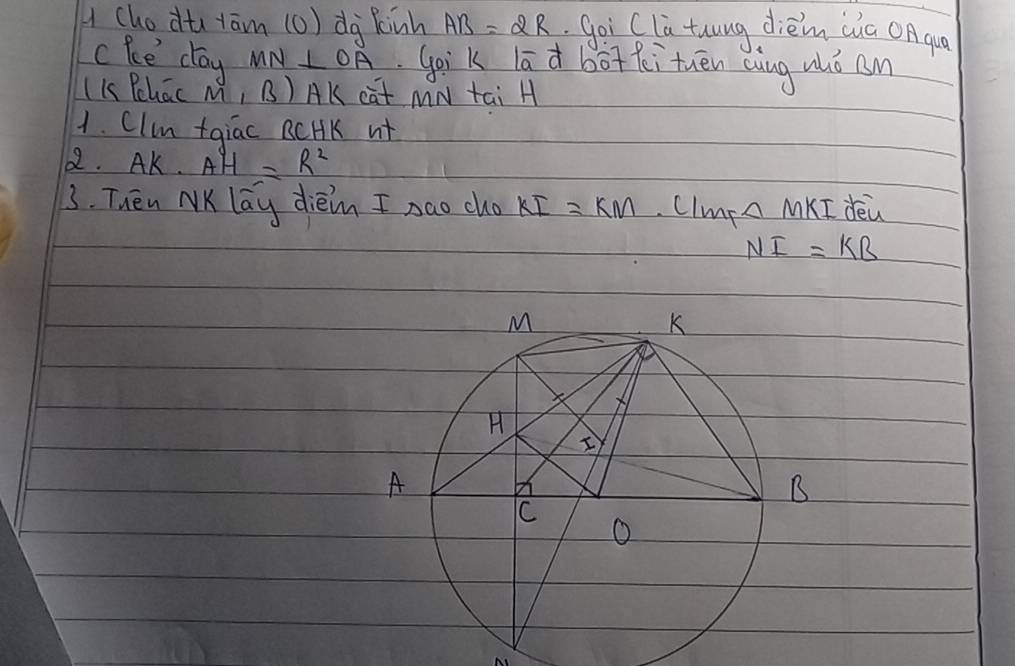 1 Cho đtr tâm (O) đg kính AB = 2R. Gọi C là trung điểm của OA qua
C kẻ dây MN ⊥ OA. Gọi K là đ bất kì trên cung nhỏ BM
(K khác M, B) AK cắt MN tại H
1. C/m tgiác BCHK nt
2. AK. AH = R²
3. Trên NK lấy điểm I sao cho KI = KM. C/m △ MKI đều
NI = KB
M K
H
I
A C O B
N